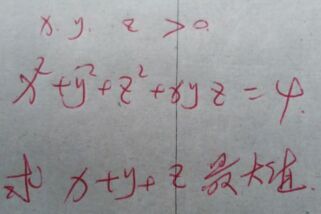 x. y. z > 0.
x²+y²+z²+xyz=4.
求 x+y+z 最大值.